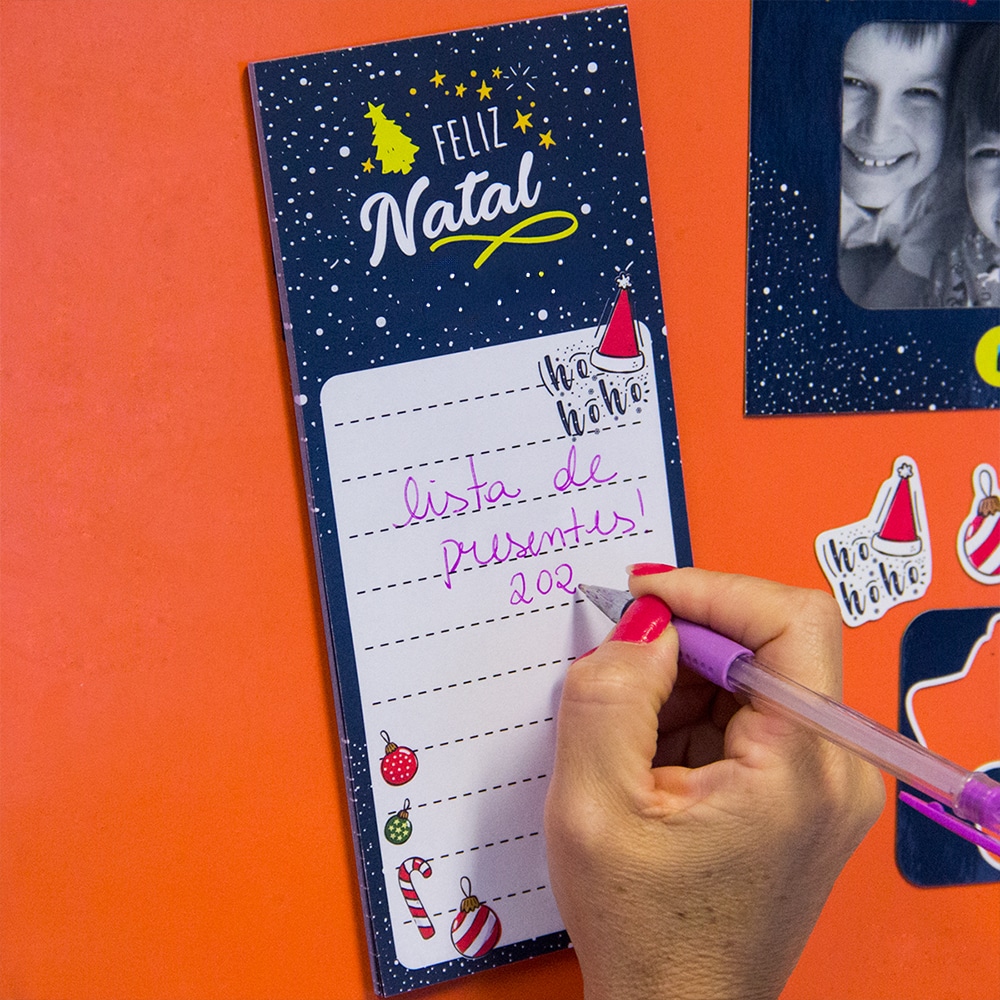 FELIZ
Natal
ho
hoho
lista de
presentes!
202
ho
hoho